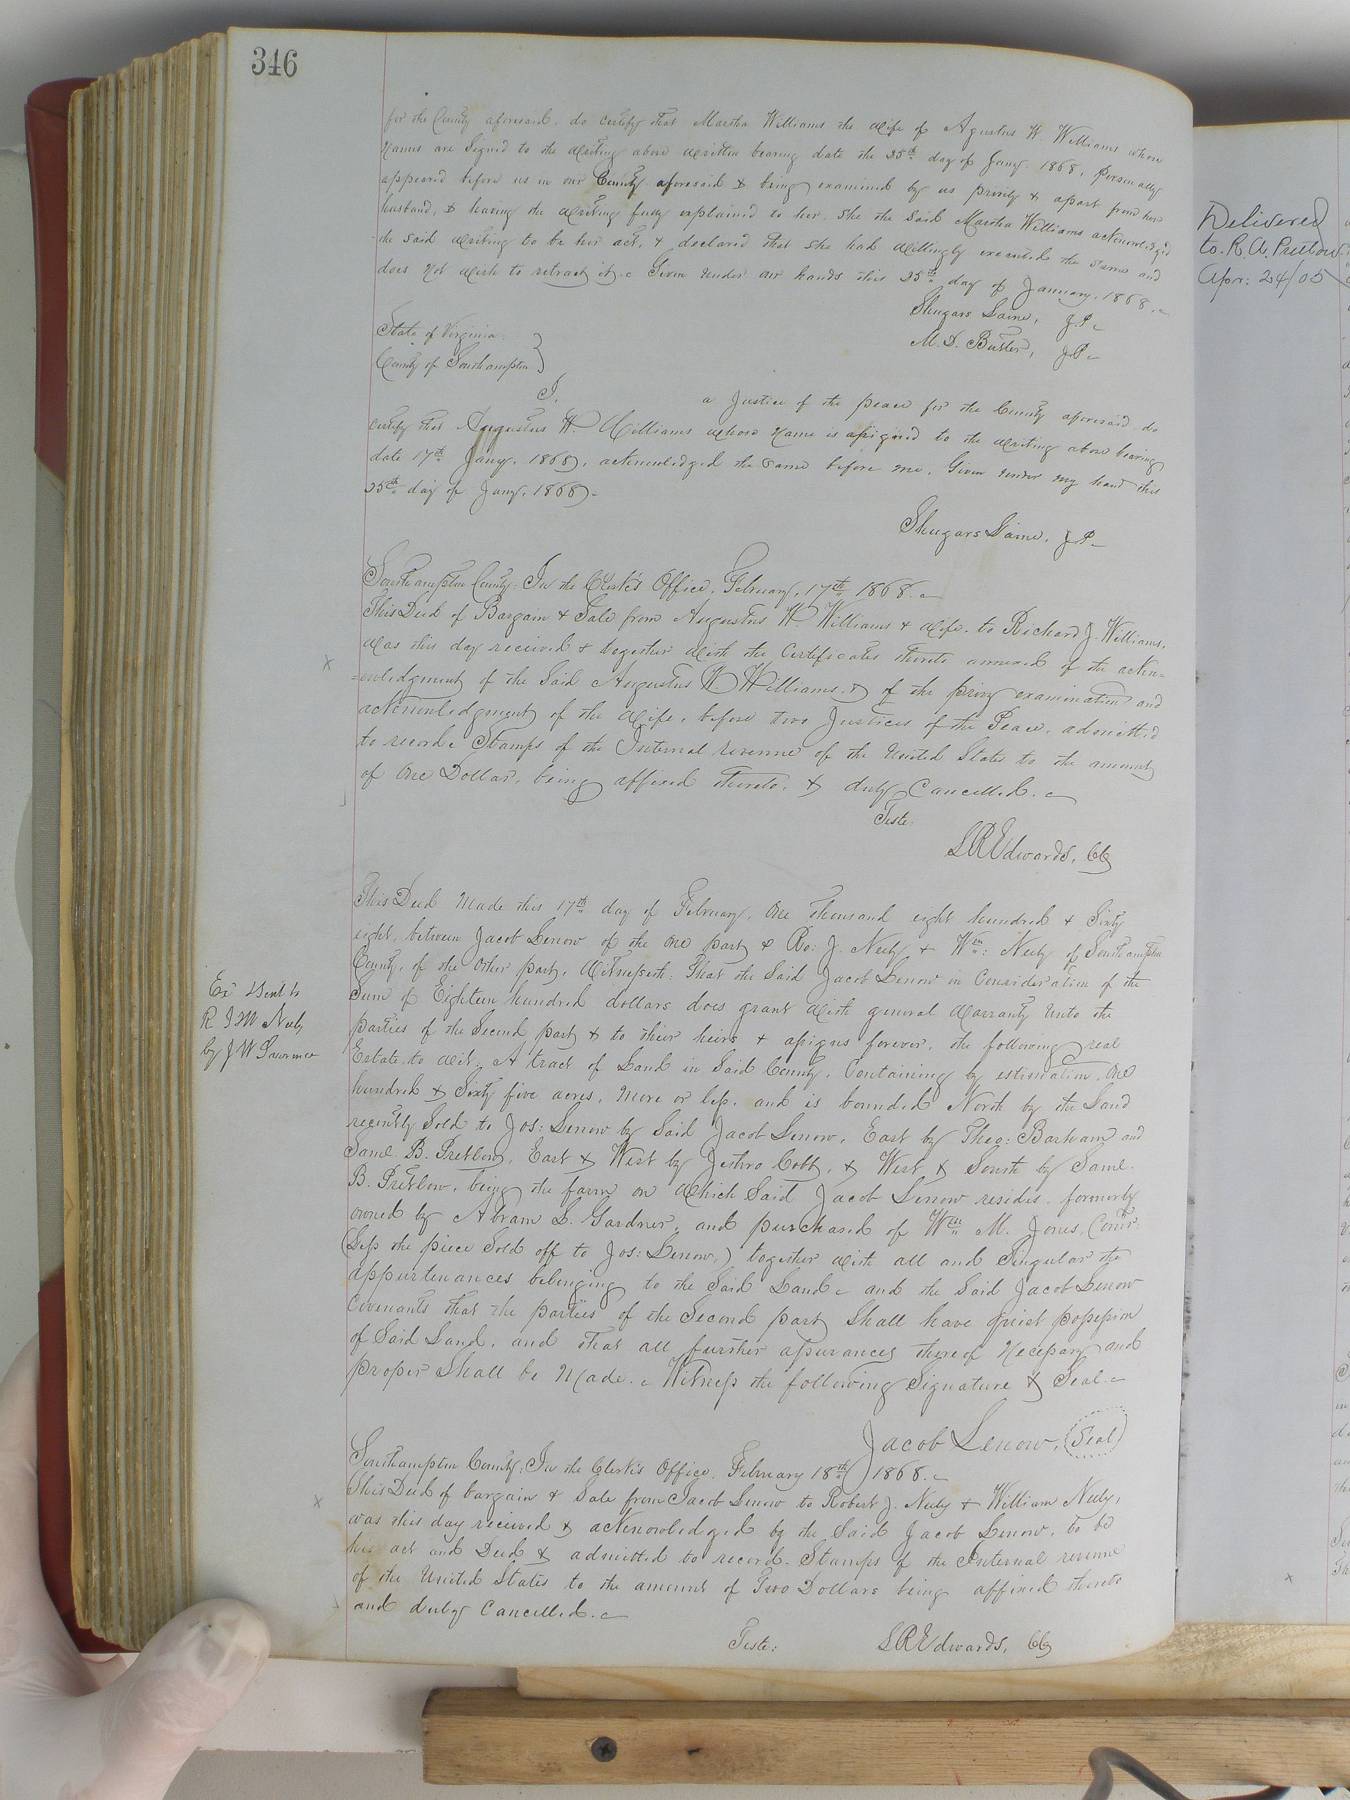 346
for the County aforesaid, do certify that Martha Williams the wife of Agustus W Williams whose
Names are Signed to the Writing above Written bearing date the 25th day of Jany. 1868, personally
appeared before us in our County aforesaid & being examined by us privily & apart from her
husband, & having the Writing fully explained to her, She the Said Martha Williams acknowledged
the said Writing to be her act, & declared that She had Willingly executed the same and
does Not Wish to retract it. Given under our hands this 25th day of January, 1868.
Shugars Laine, J.P.
M. D. Butler, J.P.
State of Virginia.
County of Southampton
I, a Justice of the peace for the County aforesaid do
certify that Augustus W. Williams whose Name is assigned to the Writing above bearing
date 17th Jany, 1868, acknowledged the same before me. Given under my hand this
25th day of Jany, 1868.
Shugars Laine, J.P.
Southampton County: In the Clerk's Office, February, 17th 1868.
This Deed of Bargain & Sale from Augustus W. Williams & Wife, to Richard J. Williams,
Was this day received & together With the Certificates thereto annexed of the ackn-
=owledgment of the Said Augustus W Williams, & of the privy examination and
acknowledgment of the Wife, before two Justices of the Peace, admitted
to record. Stamps of the Internal revenue of the United States to the amount
of One Dollar, being affixed thereto, & duly Cancelled.
Teste:
L R Edwards, CC
This Deed Made this 17th day of February, One Thousand eight hundred & Sixty
eight, between Jacob Lenow of the one part & Ro: J. Neely & Wm: Neely of Southampton
County, of the Other part, Witnesseth: That the Said Jacob Lenow in Consideration of the
Sum of Eighteen hundred dollars does grant With general Warranty Unto the
parties of the Second part & to their heirs & assigns forever, the following real
Estate, to Wit: A tract of Land in Said County, Containing by estimation, One
hundred & Sixty five acres, More or less, and is bounded North by the Land
recently Sold to Jos: Lenow by Said Jacob Lenow, East by Theo: Barham and
Saml. B. Pretlow, East & West by Jethro Cobb, & West & South by Saml.
B. Pretlow, being the farm on Which Said Jacob Lenow resides, formerly
owned by Abram L. Gardner, and purchased of Wm M. Jones, Comr.
(Less the piece Sold off to Jos: Lenow,) together With all and Singular the
appurtenances belonging to the Said Land. and the Said Jacob Lenow
Covenants that the parties of the Second part Shall have quiet possession
of Said Land, and that all further assurances thereof Necessary and
proper Shall be Made. Witness the following Signature & Seal.
Jacob Lenow, (Seal)
Southampton County: In the Clerk's Office, February 18th, 1868.
This Deed of bargain & Sale from Jacob Lenow to Robert J. Neely & William Neely,
was this day received & acknowledged by the Said Jacob Lenow, to be
his act and Deed & admitted to record. Stamps of the Internal revenue
of the United States to the amount of Two Dollars being affixed thereto
and duly Cancelled.
Teste: L R Edwards, CC
Ex'd & Sent to
R J & W Neely
by J W Lawrence
Delivered
to R. A. Pretlow
Apr: 24/05